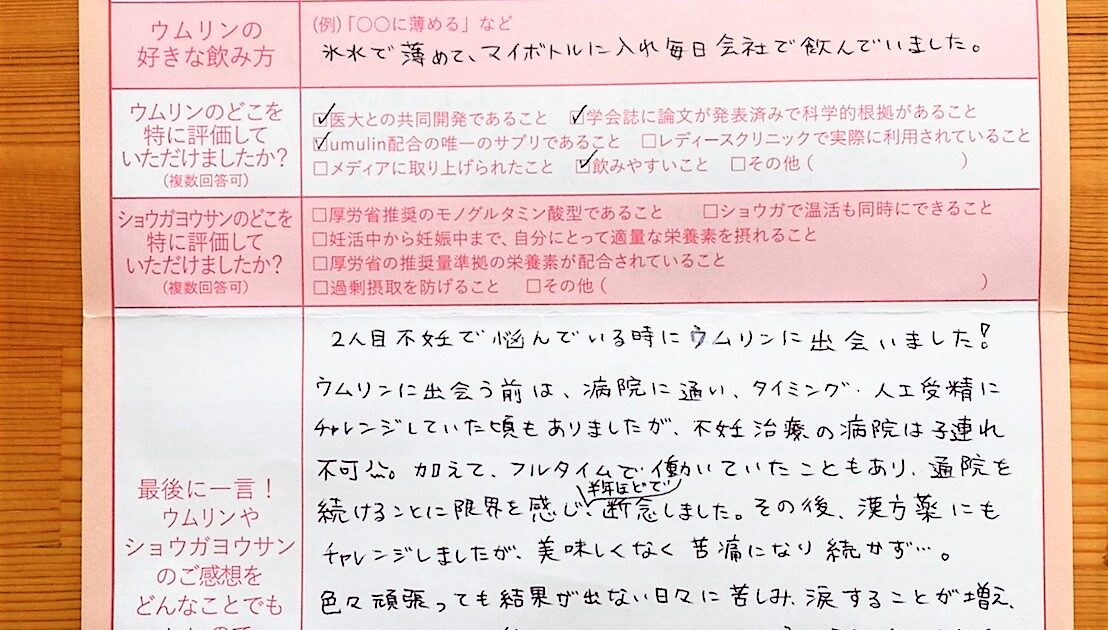 ウムリンの
好きな飲み方
(例)「〇〇に薄める」など
氷水で薄めて、マイボトルに入れ毎日会社で飲んでいました。
ウムリンのどこを
特に評価して
いただけましたか?
(複数回答可)
☑医大との共同開発であること ☑学会誌に論文が発表済みで科学的根拠があること
☑umulin配合の唯一のサプリであること □レディースクリニックで実際に利用されていること
□メディアに取り上げられたこと ☑飲みやすいこと □その他( )
ショウガヨウサンのどこを
特に評価して
いただけましたか?
(複数回答可)
□厚労省推奨のモノグルタミン酸型であること □ショウガで温活も同時にできること
□妊活中から妊娠中まで、自分にとって適量な栄養素を摂れること
□厚労省の推奨量準拠の栄養素が配合されていること
□過剰摂取を防げること □その他( )
最後に一言!
ウムリンや
ショウガヨウサン
のご感想を
どんなことでも
2人目不妊で悩んでいる時にウムリンに出会いました!
ウムリンに出会う前は、病院に通い、タイミング・人工受精に
チャレンジしていた頃もありましたが、不妊治療の病院は子連れ
不可。加えて、フルタイムで働いていたこともあり、通院を
続けることに限界を感じ、半年ほどで断念しました。その後、漢方薬にも
チャレンジしましたが、美味しくなく苦痛になり続かず…。
色々頑張っても結果が出ない日々に苦しみ、涙することが増え、